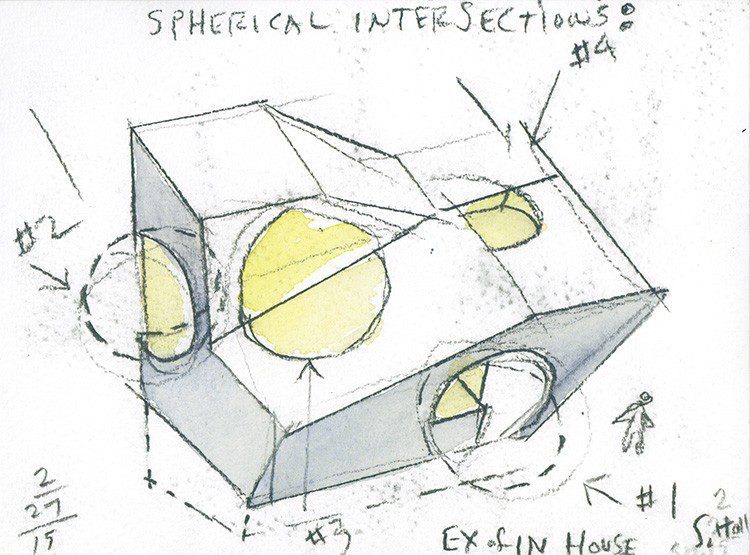 SPHERICAL INTERSECTIONS:
#4
#2
2
27
15
#3
#1
EX of IN HOUSE
2
S. Holl